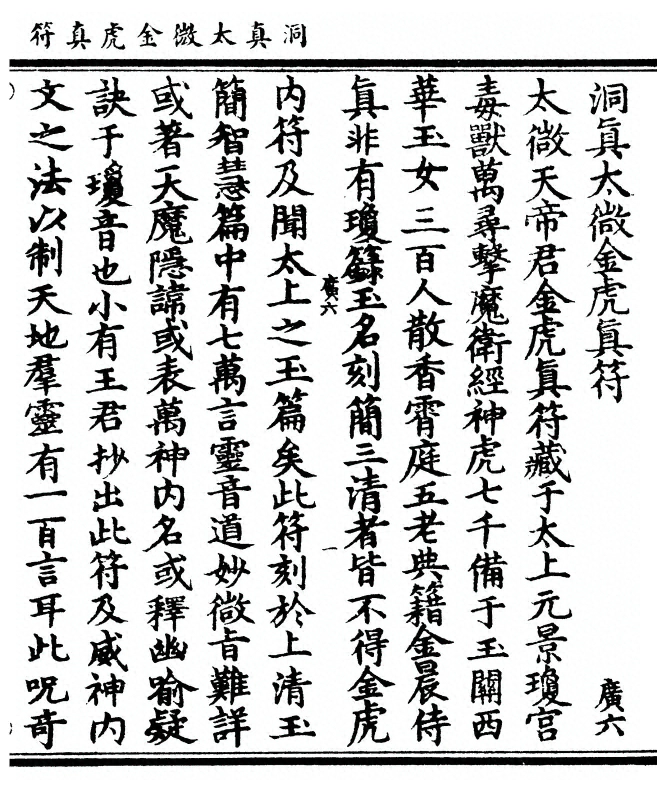 符真虎金微太真洞
洞眞太微金虎眞符
廣六
太微天帝君金虎眞符藏于太上元景瓊宮
毒獸萬尋擊魔衛經神虎七千備于玉闕西
華玉女三百人散香霄庭五老典籍金晨侍
眞非有瓊籙玉名刻簡三清者皆不得金虎
廣六
一
内符及聞太上之玉篇矣此符刻於上清玉
簡智慧篇中有七萬言靈音道妙微旨難詳
或著天魔隱諱或表萬神内名或釋幽喻疑
訣于瓊音也小有王君抄出此符及威神内
文之法以制天地羣靈有一百言耳此呪奇